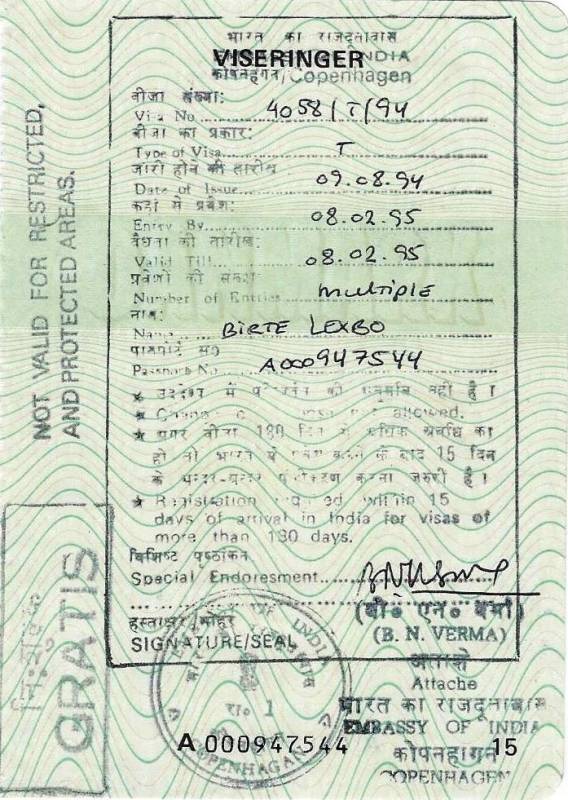 भारत का राजदूतावास
VISERINGER
INDIA
कोपनहागन/Copenhagen
वीजा संख्या:
Visa No. 4058/T/94
वीजा का प्रकार:
Type of Visa T
जारी होने की तारीख
Date of Issue 09.08.94
Entry By 08.02.95
वैधता की तारीख:
Valid Till 08.02.95
प्रवेशों की संख्या
Number of Entries multiple
नाम:
Name BIRTE LEXBO
Passport No A000947544
★ उद्देश्य में की अनुमति नहीं है।
★ allowed.
★ अगर वीजा 180 दिन से अधिक अवधि का
हो तो भारत में के बाद 15 दिन
के करना जरूरी है।
★ Registration required within 15
days of arrival in India for visas of
more than 180 days.
विशिष्ट पृष्ठांकन
Special Endoresment
हस्ताक्षर/मोहर
SIGNATURE/SEAL
(बी० एन० वर्मा)
(B. N. VERMA)
अताशे
Attache
भारत का राजदूतावास
EMBASSY OF INDIA
कोपनहागन
COPENHAGEN
NOT VALID FOR RESTRICTED,
AND PROTECTED AREAS.
निःशुल्क
GRATIS
OF INDIA
रा० 1
COPENHAGEN
A 000947544
15